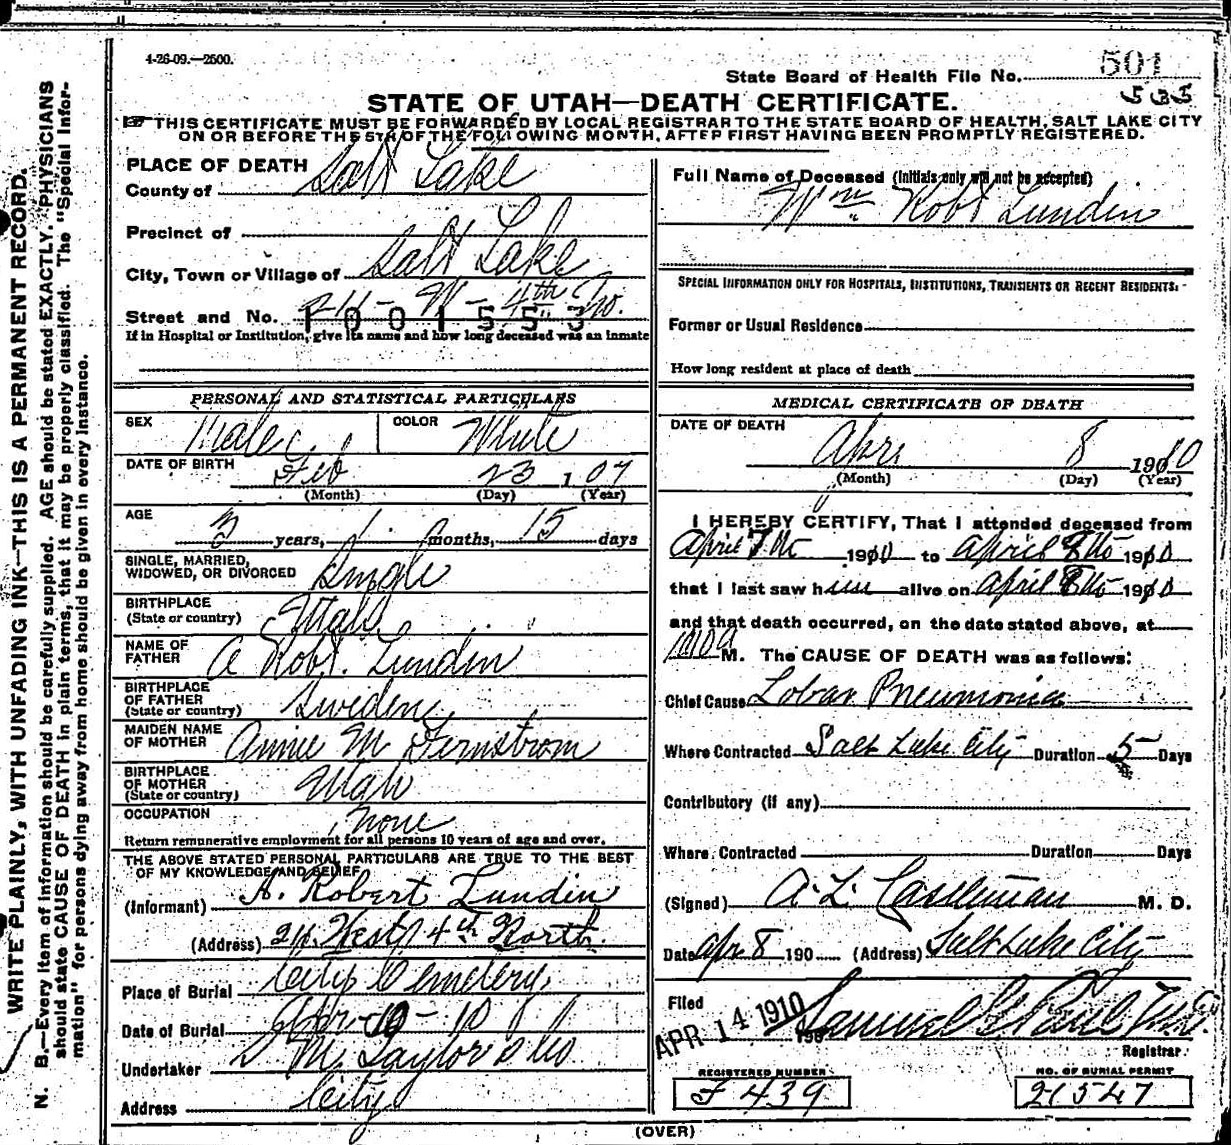 4-26-09.—2500.
State Board of Health File No. 501
535
STATE OF UTAH—DEATH CERTIFICATE.
THIS CERTIFICATE MUST BE FORWARDED BY LOCAL REGISTRAR TO THE STATE BOARD OF HEALTH, SALT LAKE CITY
ON OR BEFORE THE 5th OF THE FOLLOWING MONTH, AFTER FIRST HAVING BEEN PROMPTLY REGISTERED.
WRITE PLAINLY, WITH UNFADING INK—THIS IS A PERMANENT RECORD.
N. B.—Every item of information should be carefully supplied. AGE should be stated EXACTLY. PHYSICIANS
should state CAUSE OF DEATH in plain terms, that it may be properly classified. The "Special Infor-
mation" for persons dying away from home should be given in every instance.
PLACE OF DEATH
County of Salt Lake
Precinct of
City, Town or Village of Salt Lake
Street and No. W - 4th No.
1001553
If in Hospital or Institution, give its name and how long deceased was an inmate
PERSONAL AND STATISTICAL PARTICULARS
SEX Male COLOR White
DATE OF BIRTH Feb 23 1 07
(Month) (Day) (Year)
AGE 3 years, 1 months, 15 days
SINGLE, MARRIED,
WIDOWED, OR DIVORCED Single
BIRTHPLACE
(State or country) Utah
NAME OF
FATHER A Robt. Lundin
BIRTHPLACE
OF FATHER
(State or country) Sweden
MAIDEN NAME
OF MOTHER Annie M Fernstrom
BIRTHPLACE
OF MOTHER
(State or country) Utah
OCCUPATION none
Return remunerative employment for all persons 10 years of age and over.
THE ABOVE STATED PERSONAL PARTICULARS ARE TRUE TO THE BEST
OF MY KNOWLEDGE AND BELIEF
(Informant) A. Robert Lundin
(Address) West 4th North.
Place of Burial City Cemetery
Date of Burial Apr 10 - 10
Undertaker S M Taylor & Co
Address City
Full Name of Deceased (Initials only will not be accepted)
Wm Robt Lundin
SPECIAL INFORMATION ONLY FOR HOSPITALS, INSTITUTIONS, TRANSIENTS OR RECENT RESIDENTS.
Former or Usual Residence
How long resident at place of death
MEDICAL CERTIFICATE OF DEATH
DATE OF DEATH
Apr. 8 1910
(Month) (Day) (Year)
I HEREBY CERTIFY, That I attended deceased from
April 7th 1910 to April 8th 1910
that I last saw him alive on April 8th 1910
and that death occurred, on the date stated above, at
M. The CAUSE OF DEATH was as follows:
Chief Cause Lobar Pneumonia
Where Contracted Salt Lake City Duration 5 Days
Contributory (if any)
Where Contracted Duration Days
(Signed) A. L. Castleman M. D.
Date Apr 8 190 (Address) Salt Lake City
Filed APR 14 1910 190 Samuel G Paul M.D.
Registrar
REGISTERED NUMBER
F 439
NO. OF BURIAL PERMIT
21547
(OVER)